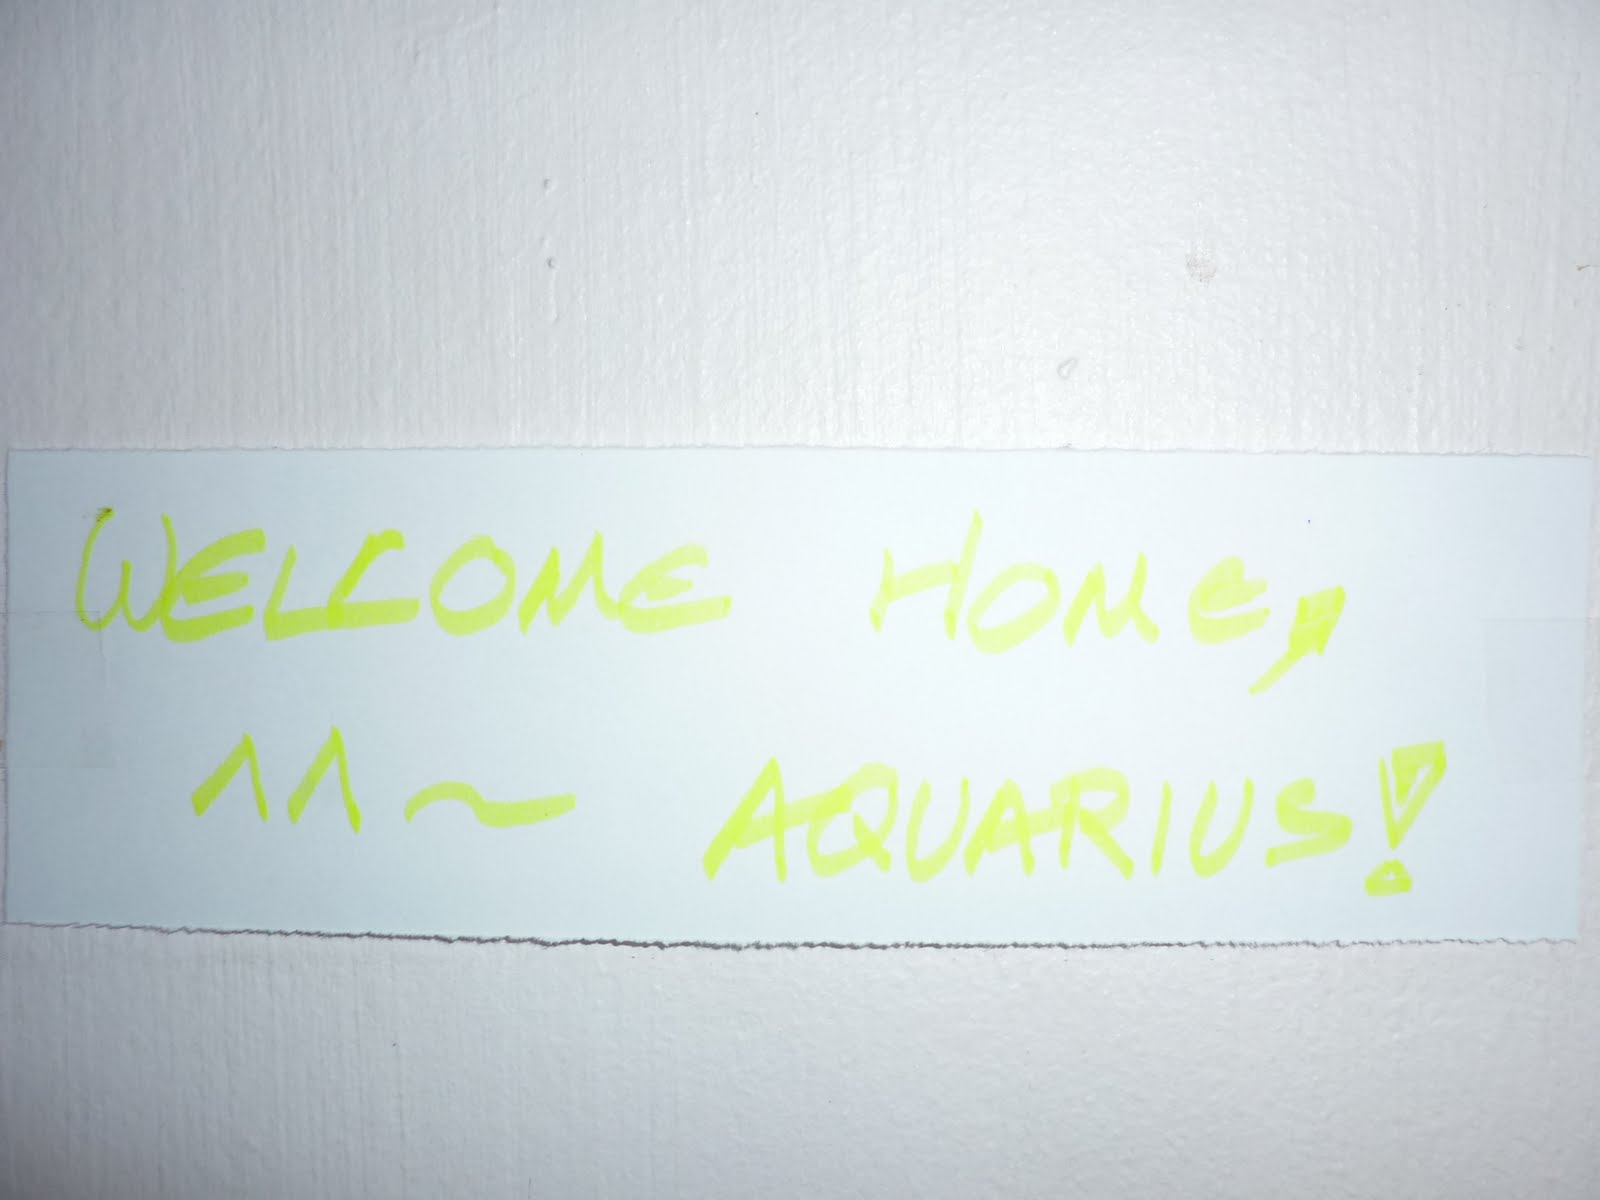 WELCOME HOME,
^^~ AQUARIUS!